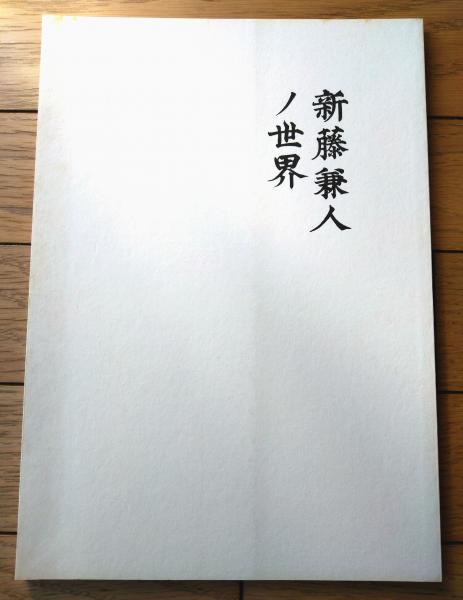 新藤兼人
ノ世界